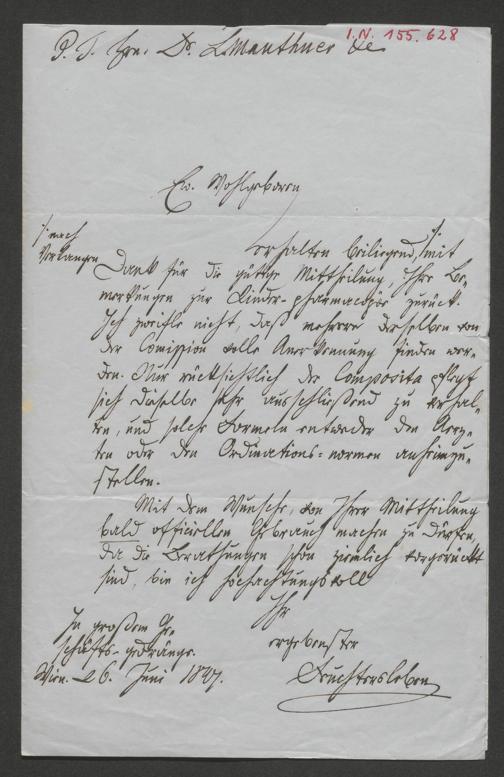 I.N. 155.628
P. T. Hrn. Dr. L. Mauthner &c
Ew. Wohlgeboren
/: nach
Verlangen
erhalten beiliegend, /: mit
Dank für die gütige Mittheilung, Ihre Be-
merkungen zur Kinder-pharmacopöe zurück.
Ich zweifle nicht, daß mehrere derselben von
der Comission volle Anerkennung finden wer-
den. Nur rücksichtlich der Composita pflegt
sich dieselbe sehr ausschließend zu verhal-
ten, und solche Formeln entweder den Aerz-
ten oder den Ordinations-normen anheimzu-
stellen.
Mit dem Wunsche, von Ihrer Mittheilung
bald officiellen Gebrauch machen zu dürfen,
da die Berathungen schon ziemlich vorgerückt
sind, bin ich hochachtungsvoll
Ihr
In großem Ge-
schäfts-gedränge.
ergebenster
Wien. d 6. Juni 1847.
Feuchtersleben